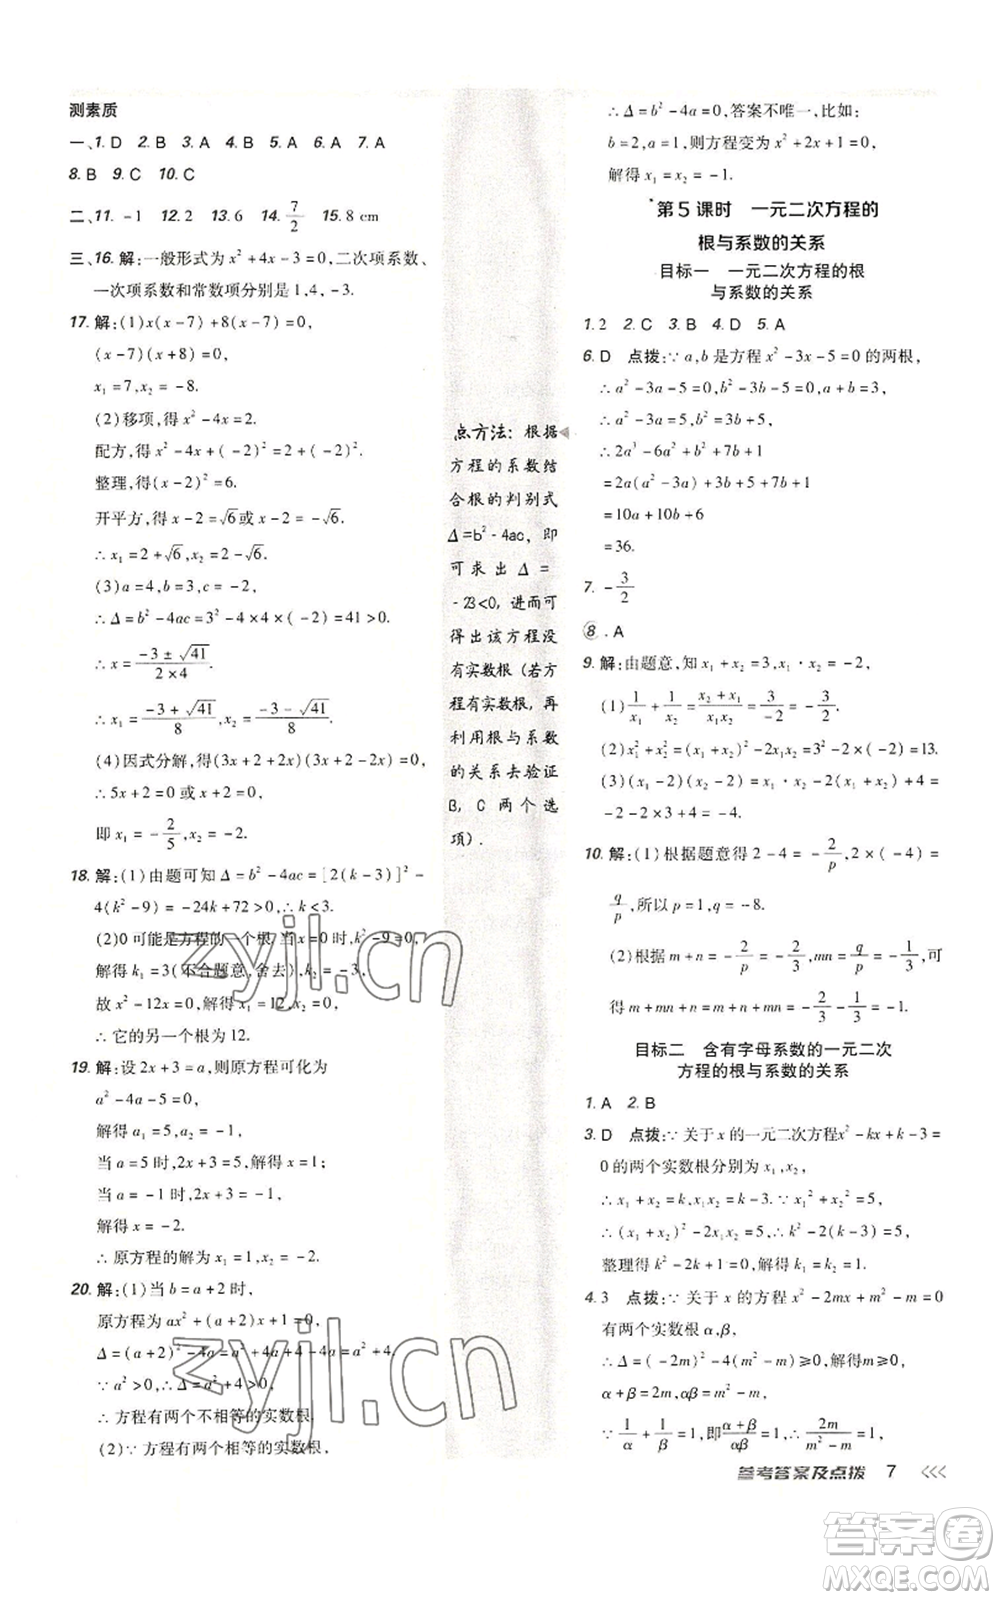 测素质
一、1. D 2. B 3. A 4. B 5. A 6. A 7. A
8. B 9. C 10. C
二、11. -1 12. 2 13. 6 14. 7/2 15. 8 cm
三、16. 解:一般形式为 x²+4x-3=0,二次项系数、
一次项系数和常数项分别是1,4,-3.
17. 解:(1)x(x-7)+8(x-7)=0,
(x-7)(x+8)=0,
x₁=7,x₂=-8.
(2)移项,得 x²-4x=2.
配方,得 x²-4x+(-2)²=2+(-2)².
整理,得(x-2)²=6.
开平方,得 x-2=√6或 x-2=-√6.
∴x₁=2+√6,x₂=2-√6.
(3)a=4,b=3,c=-2.
∴Δ=b²-4ac=3²-4×4×(-2)=41>0.
∴x=(-3±√41)/(2×4)
∴x₁=(-3+√41)/8,x₂=(-3-√41)/8.
(4)因式分解,得(3x+2+2x)(3x+2-2x)=0.
∴5x+2=0或 x+2=0.
即 x₁=-2/5,x₂=-2.
18. 解:(1)由题可知 Δ=b²-4ac=[2(k-3)]²-
4(k²-9)=-24k+72>0,∴k<3.
(2)0可能是方程的一个根,当 x=0时,k²-9=0,
解得 k₁=3(不合题意,舍去),k₂=-3,
故 x²-12x=0,解得 x₁=12,x₂=0,
∴它的另一个根为12.
19. 解:设2x+3=a,则原方程可化为
a²-4a-5=0,
解得 a₁=5,a₂=-1,
当 a=5时,2x+3=5,解得 x=1;
当 a=-1时,2x+3=-1,
解得 x=-2.
∴原方程的解为 x₁=1,x₂=-2.
20. 解:(1)当 b=a+2时,
原方程为 ax²+(a+2)x+1=0,
Δ=(a+2)²-4a=a²+4a+4-4a=a²+4.
∵a²>0,∴Δ=a²+4>0.
∴方程有两个不相等的实数根.
(2)∵方程有两个相等的实数根,
点方法:根据
方程的系数结
合根的判别式
Δ=b²-4ac,即
可求出Δ=
-23<0,进而可
得出该方程没
有实数根(若方
程有实数根,再
利用根与系数
的关系去验证
B,C两个选
项).
∴Δ=b²-4a=0,答案不唯一,比如:
b=2,a=1,则方程变为 x²+2x+1=0,
解得 x₁=x₂=-1.
*第5课时 一元二次方程的
根与系数的关系
目标一 一元二次方程的根
与系数的关系
1. 2 2. C 3. B 4. D 5. A
6. D 点拨:∵a,b是方程 x²-3x-5=0的两根,
∴a²-3a-5=0,b²-3b-5=0,a+b=3.
∴a²-3a=5,b²=3b+5.
∴2a³-6a²+b²+7b+1
=2a(a²-3a)+3b+5+7b+1
=10a+10b+6
=36.
7. -3/2
8. A
9. 解:由题意,知 x₁+x₂=3,x₁x₂=-2,
(1)1/x₁+1/x₂=(x₂+x₁)/(x₁x₂)=3/(-2)=-3/2.
(2)x₁²+x₂²=(x₁+x₂)²-2x₁·x₂=3²-2×(-2)=13.
(3)(x₁-2)(x₂-2)=x₁·x₂-2(x₁+x₂)+4=
-2-2×3+4=-4.
10. 解:(1)根据题意得2-4=-2/p,2×(-4)=
q/p,所以 p=1,q=-8.
(2)根据 m+n=-2/p=-2/3,mn=q/p=-1/3,可
得 m+mn+n=m+n+mn=-2/3-1/3=-1.
目标二 含有字母系数的一元二次
方程的根与系数的关系
1. A 2. B
3. D 点拨:∵关于 x 的一元二次方程x²-kx+k-3=
0的两个实数根分别为 x₁,x₂,
∴x₁+x₂=k,x₁x₂=k-3.∵x₁²+x₂²=5,
∴(x₁+x₂)²-2x₁x₂=5,∴k²-2(k-3)=5,
整理得 k²-2k+1=0,解得 k₁=k₂=1.
4. 3 点拨:∵关于 x 的方程 x²-2mx+m²-m=0
有两个实数根α,β,
∴Δ=(-2m)²-4(m²-m)≥0,解得m≥0,
α+β=2m,αβ=m²-m.
∵1/α+1/β=1,即(α+β)/(αβ)=2m/(m²-m)=1,
参考答案及点拨 7
zyjl.cn
zyjl.cn
答案圈
MXQE.COM